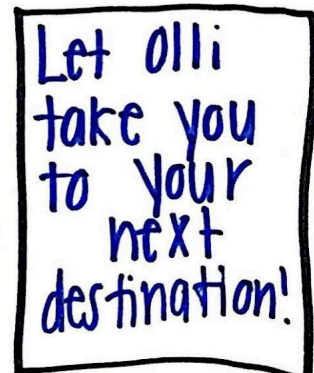 Let Olli
take you
to your
next
destination!